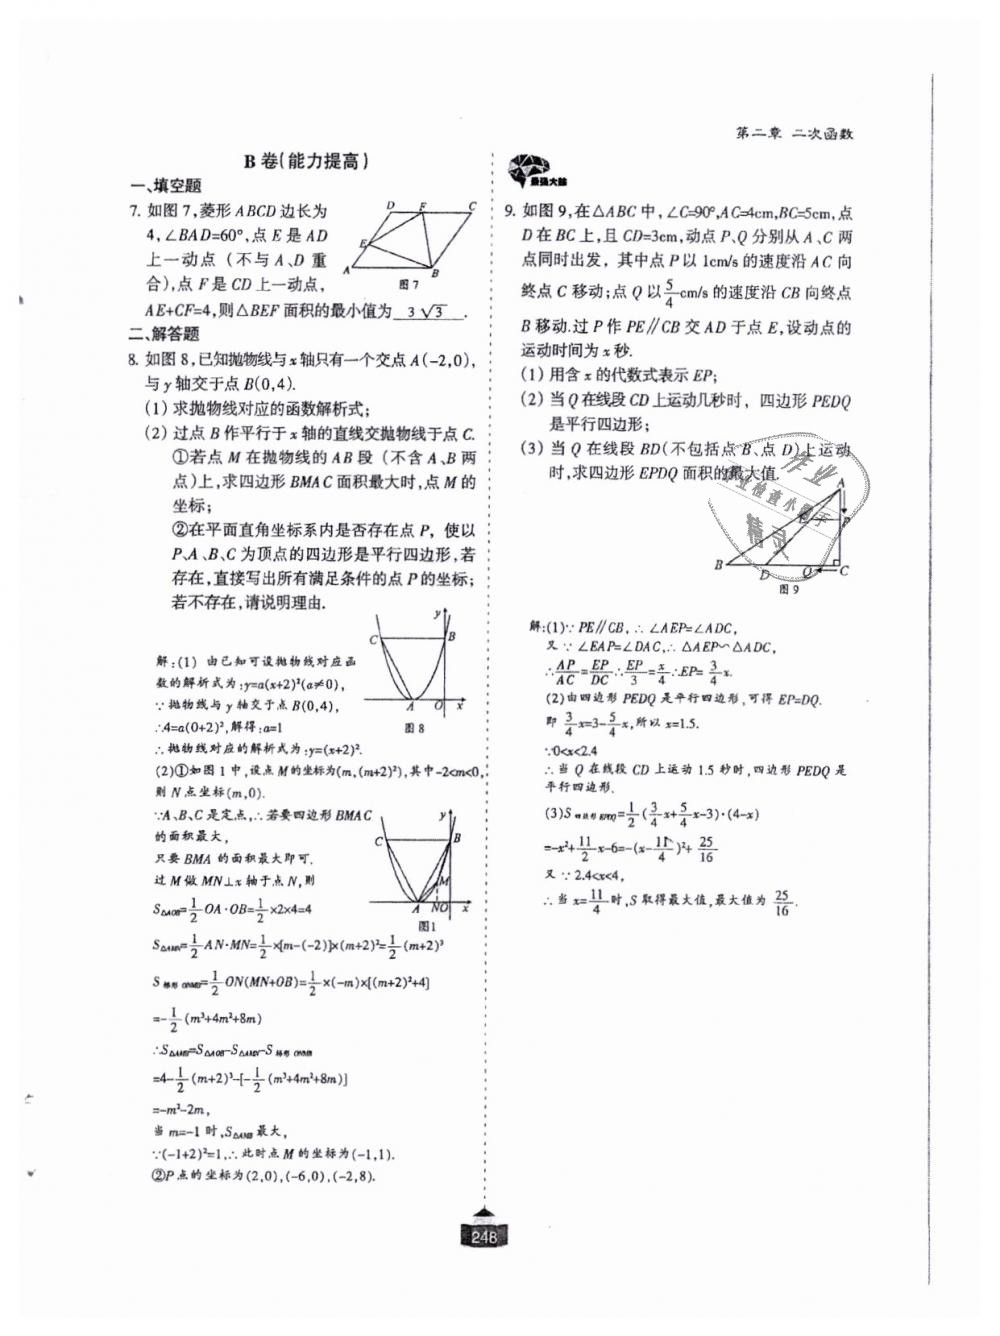 第二章 二次函数
B 卷(能力提高)
一、填空题
7. 如图 7,菱形 ABCD 边长为
4,∠BAD=60°,点 E 是 AD
上一动点（不与 A、D 重
合),点 F 是 CD 上一动点,
AE+CF=4,则△BEF 面积的最小值为 3√3 .
D F C
E
A B
图 7
二、解答题
8. 如图 8,已知抛物线与 x 轴只有一个交点 A(-2,0),
与 y 轴交于点 B(0,4).
(1) 求抛物线对应的函数解析式;
(2) 过点 B 作平行于 x 轴的直线交抛物线于点 C.
①若点 M 在抛物线的 AB 段（不含 A、B 两
点)上,求四边形 BMAC 面积最大时,点 M 的
坐标;
②在平面直角坐标系内是否存在点 P, 使以
P、A、B、C 为顶点的四边形是平行四边形,若
存在,直接写出所有满足条件的点 P 的坐标;
若不存在,请说明理由.
y
C B
A O x
图 8
解:(1) 由已知可设抛物线对应函
数的解析式为:y=a(x+2)²(a≠0),
∵抛物线与 y 轴交于点 B(0,4),
∴4=a(0+2)²,解得:a=1
∴抛物线对应的解析式为:y=(x+2)².
(2)①如图 1 中,设点 M 的坐标为(m,(m+2)²),其中-2<m<0,
则 N 点坐标(m,0).
∵A、B、C 是定点,∴若要四边形 BMAC
的面积最大,
只要 BMA 的面积最大即可.
过 M 做 MN⊥x 轴于点 N,则
S△AOB=1/2 OA·OB=1/2×2×4=4
y
C B
M
A N O x
图1
S△AMN=1/2 AN·MN=1/2×[m-(-2)]×(m+2)²=1/2(m+2)³
S梯形ONMB=1/2 ON(MN+OB)=1/2×(-m)×[(m+2)²+4]
=-1/2(m³+4m²+8m)
∴S△AMB=S△AOB-S△AMN-S梯形ONMB
=4-1/2(m+2)³-[-1/2(m³+4m²+8m)]
=-m²-2m,
当 m=-1 时,S△AMB 最大,
∵(-1+2)²=1,∴此时点 M 的坐标为(-1,1).
②P 点的坐标为(2,0),(-6,0),(-2,8).
最强大脑
9. 如图 9,在△ABC 中,∠C=90°,AC=4cm,BC=5cm,点
D 在 BC 上,且 CD=3cm,动点 P、Q 分别从 A、C 两
点同时出发，其中点 P 以 1cm/s 的速度沿 AC 向
终点 C 移动;点 Q 以 5/4 cm/s 的速度沿 CB 向终点
B 移动.过 P 作 PE∥CB 交 AD 于点 E,设动点的
运动时间为 x 秒.
(1) 用含 x 的代数式表示 EP;
(2) 当 Q 在线段 CD 上运动几秒时，四边形 PEDQ
是平行四边形;
(3) 当 Q 在线段 BD(不包括点 B、点 D)上运动
时,求四边形 EPDQ 面积的最大值.
作业
作业检查小帮手
精灵
A
E P
B D Q C
图 9
解:(1)∵PE∥CB,∴∠AEP=∠ADC,
又∵∠EAP=∠DAC,∴△AEP∽△ADC,
∴AP/AC=EP/DC∴EP/3=x/4∴EP=3/4 x.
(2)由四边形 PEDQ 是平行四边形,可得 EP=DQ.
即 3/4 x=3-5/4 x,所以 x=1.5.
∵0<x<2.4
∴当 Q 在线段 CD 上运动 1.5 秒时,四边形 PEDQ 是
平行四边形.
(3)S四边形EPDQ=1/2(3/4 x+5/4 x-3)·(4-x)
=-x²+11/2 x-6=-(x-11/4)²+25/16
又∵2.4<x<4,
∴当 x=11/4 时,S 取得最大值,最大值为 25/16.
248